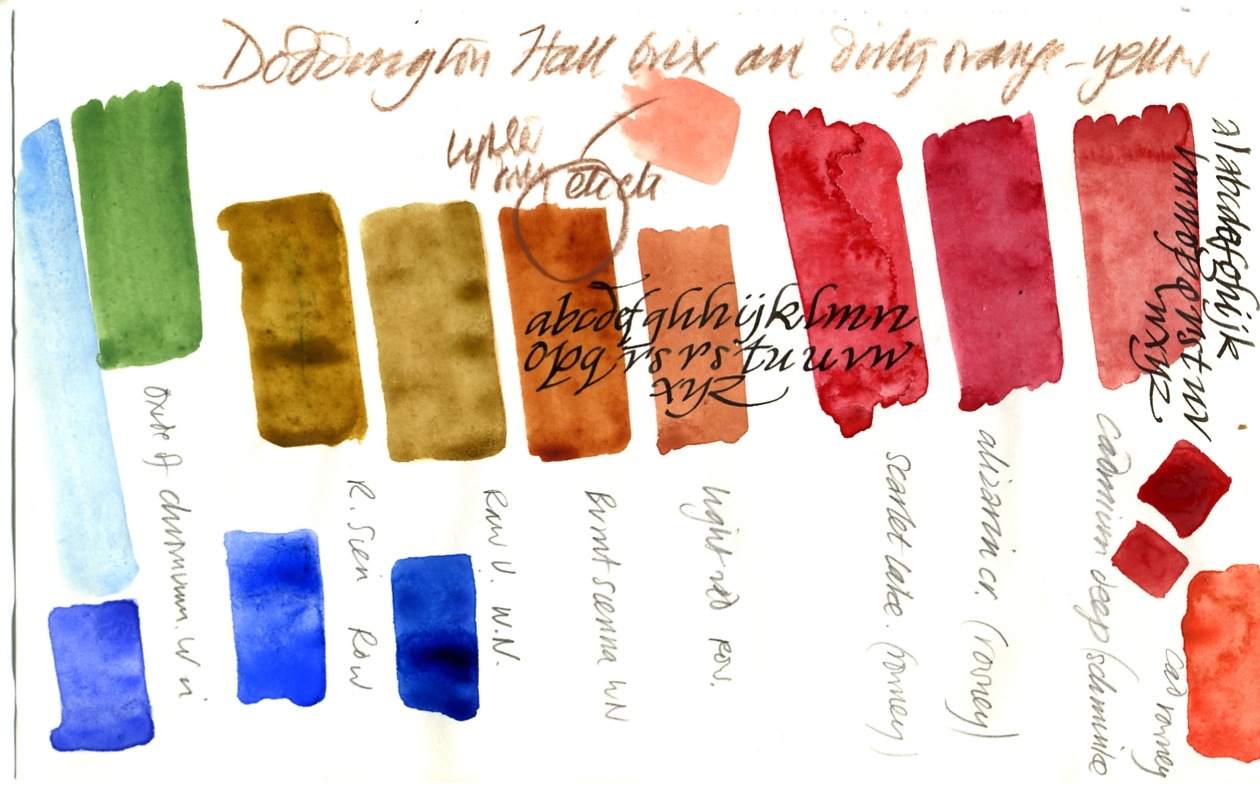 Doddington Hall brix are dirty orange-yellow
abcdefghhijklmn
opqrsrstuuvw
xyz
abcdefghijk
lmnopqrstuv
wxyz
oxide of chromium. W N
R. Sien Row.
Raw U. W.N.
Burnt Sienna WN
light red row.
scarlet lake. (rowney)
alizarin cr. (rowney)
cadmium deep (schminke
cad rowney